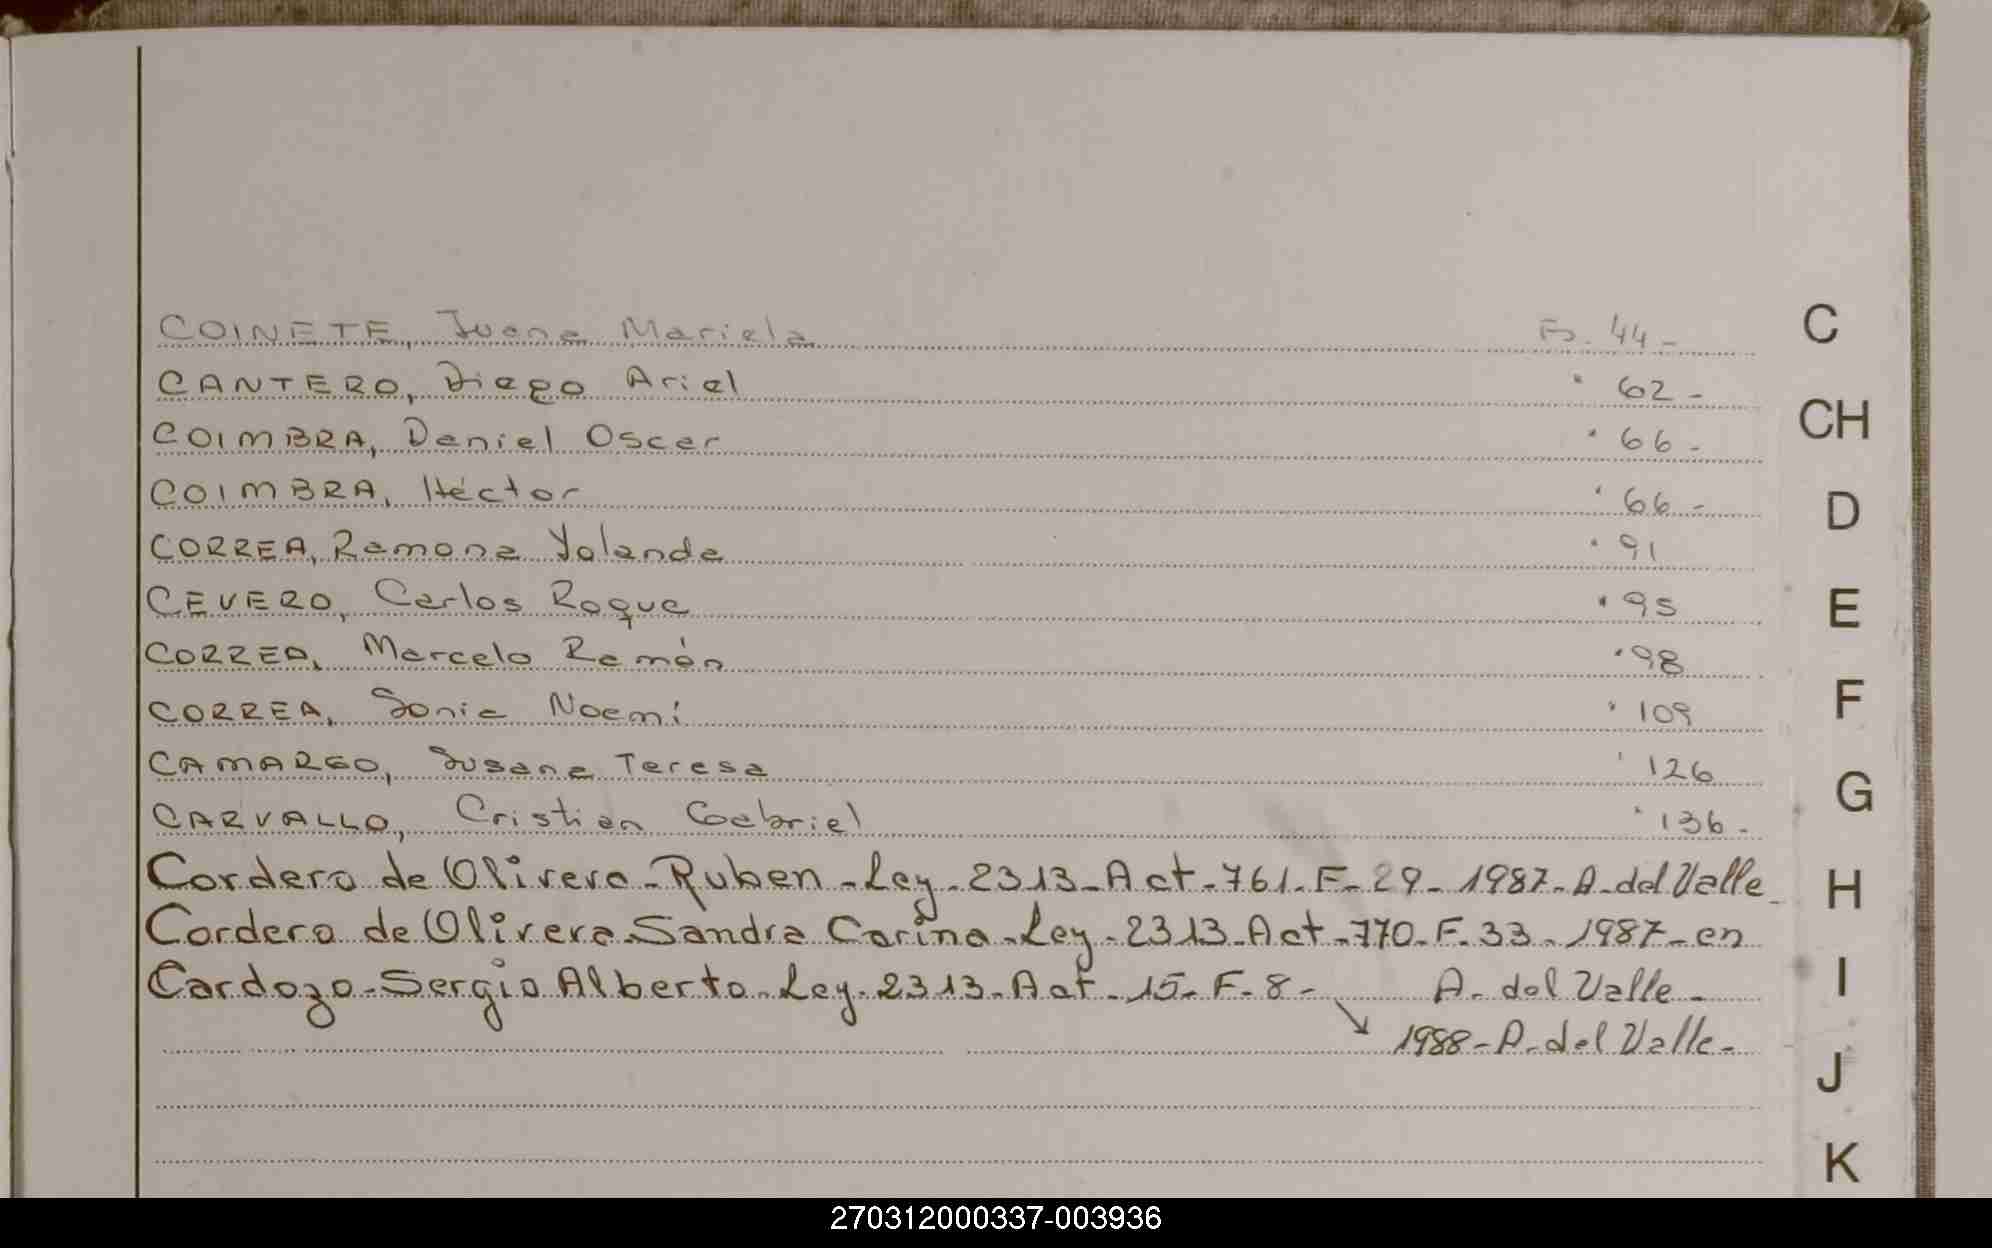 COINETE, Juana Mariela Fs. 44-
CANTERO, Diego Ariel " 62-
COIMBRA, Daniel Oscar " 66-
COIMBRA, Héctor " 66-
CORREA, Ramona Yolanda " 91
CEVERO, Carlos Roque " 95
CORREA, Marcelo Ramón " 98
CORREA, Sonia Noemí " 109
CAMARGO, Susana Teresa " 126
CARVALLO, Cristian Gabriel " 136-
Cordero de Olivera-Ruben-Ley-2313-Act-761-F-29-1987-A-del Valle-
Cordero de Olivera-Sandra Carina-Ley-2313-Act-770-F-33-1987-en
Cardozo-Sergio Alberto-Ley-2313-Act-15-F-8- A-del Valle-
1988-A-del Valle-
C
CH
D
E
F
G
H
I
J
K
270312000337-003936